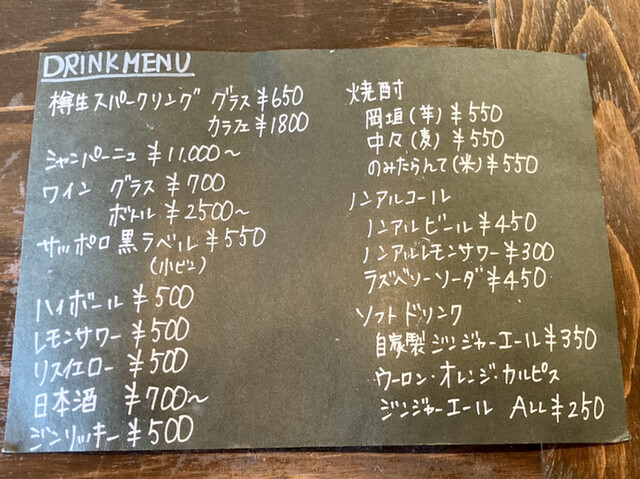 DRINK MENU
樽生スパークリング グラス ¥650
カラフェ ¥1800
シャンパーニュ ¥11.000~
ワイン グラス ¥700
ボトル ¥2500~
サッポロ黒ラベル ¥550
(小ビン)
ハイボール ¥500
レモンサワー ¥500
リスイエロー ¥500
日本酒 ¥700~
ジンリッキー ¥500
焼酎
岡垣(芋) ¥550
中々(麦) ¥550
のみたらんて(米) ¥550
ノンアルコール
ノンアルビール ¥450
ノンアルレモンサワー ¥300
ラズベリーソーダ ¥450
ソフトドリンク
自家製ジンジャーエール ¥350
ウーロン・オレンジ・カルピス
ジンジャーエール ALL ¥250